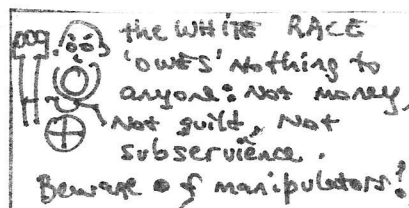 the WHITE RACE
'OWES' Nothing to
anyone: Not money,
Not guilt, Not
subservience.
Beware of manipulators!